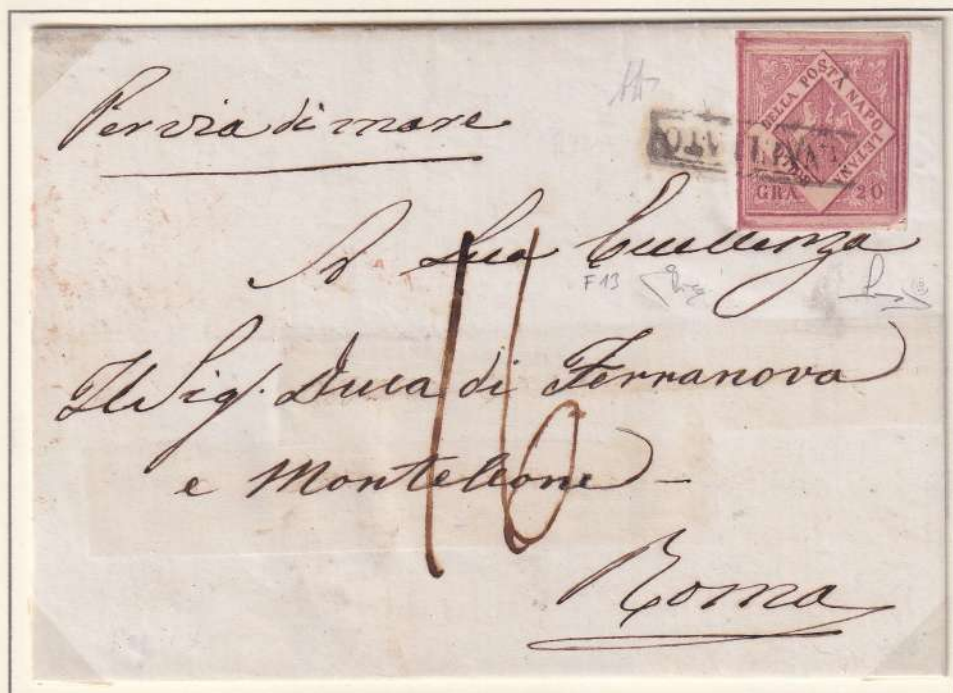 Per via di mare
BOLLO DELLA POSTA NAPOLETANA
GRA 20
ANNULLATO
A Sua Eccellenza
F 13
16
Il Sig.r Duca di Terranova
e Monteleone –
Roma